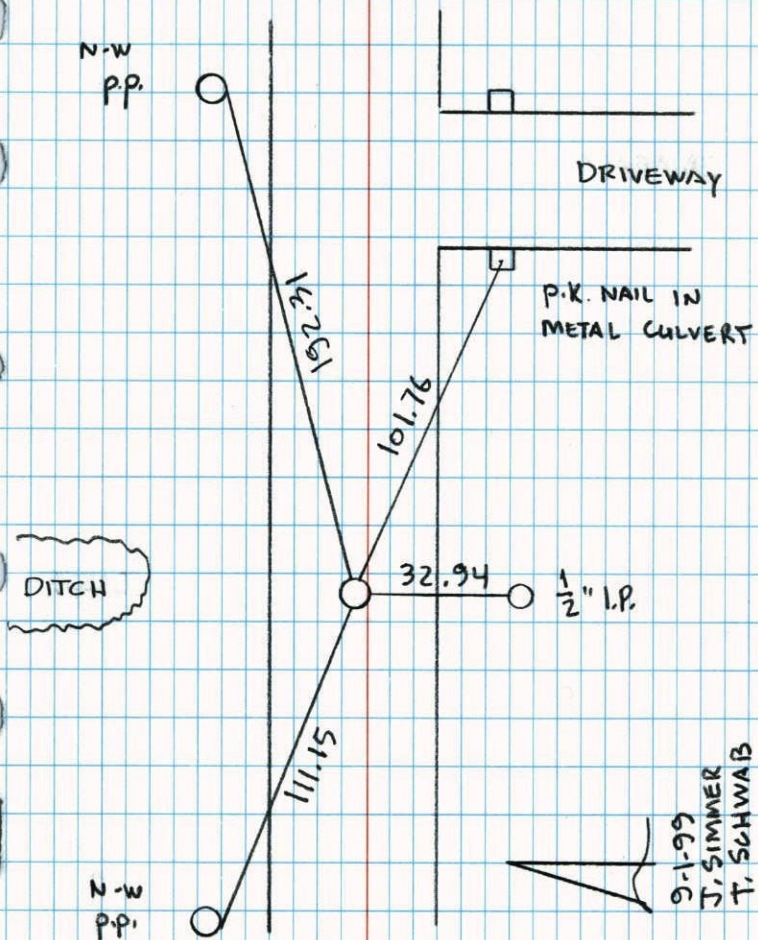 N-W
P.P.
DRIVEWAY
P.K. NAIL IN
METAL CULVERT
192.31
101.76
DITCH
32.94
1/2" I.P.
111.15
N-W
P.P.
9-1-99
J. SIMMER
T. SCHWAB